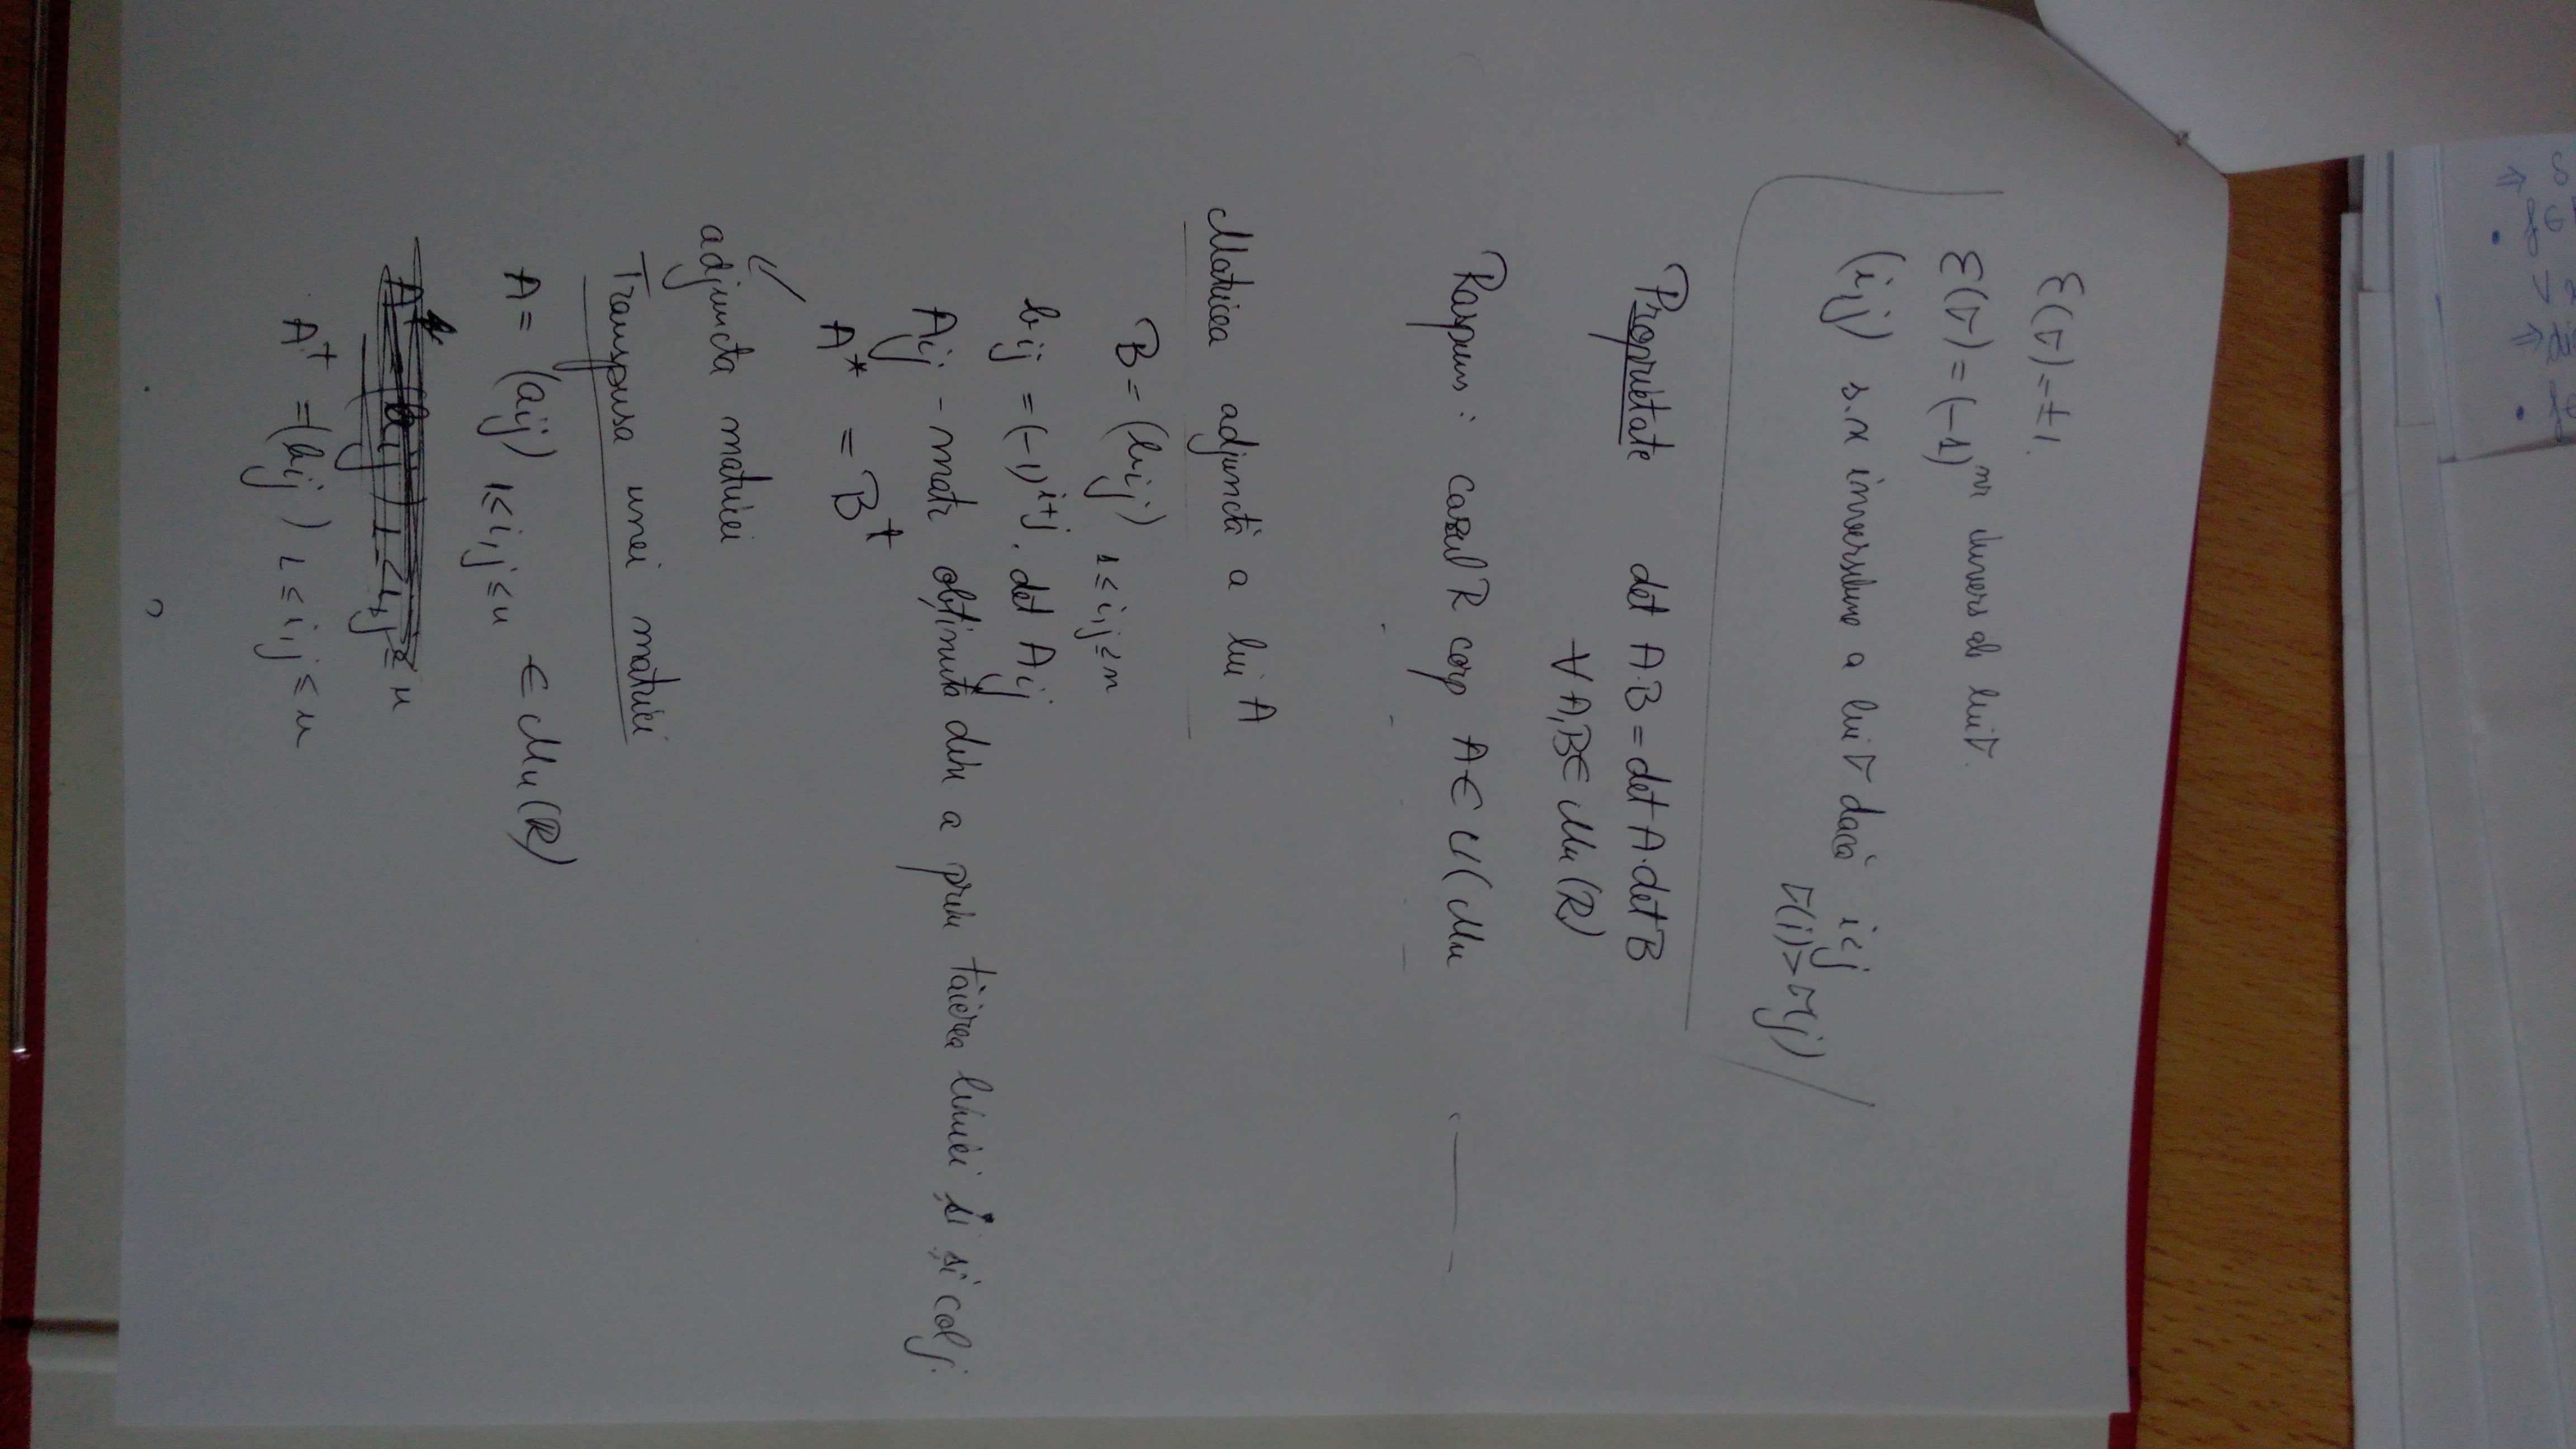 ε(σ) = ±1.
ε(σ) = (-1)^nr invers al lui σ.
(i,j) s.n inversiune a lui σ dacă i<j
σ(i)>σ(j)
Proprietate det A·B = det A·det B
∀ A,B ∈ Mn (R)
Raspuns: cazul R corp A ∈ U( Mn
Matricea adjunctă a lui A
B = (bij) 1 ≤ i,j ≤ n
bij = (-1)^i+j · det Aij
Aij - matr obținuta din a prin tăierea liniei i și col j.
A* = B^t
adjuncta matricei
Transpusa unei matrici
A = (aij) 1≤i,j≤n ∈ Mn (R)
A^t = (bij) 1 ≤ i,j ≤ n